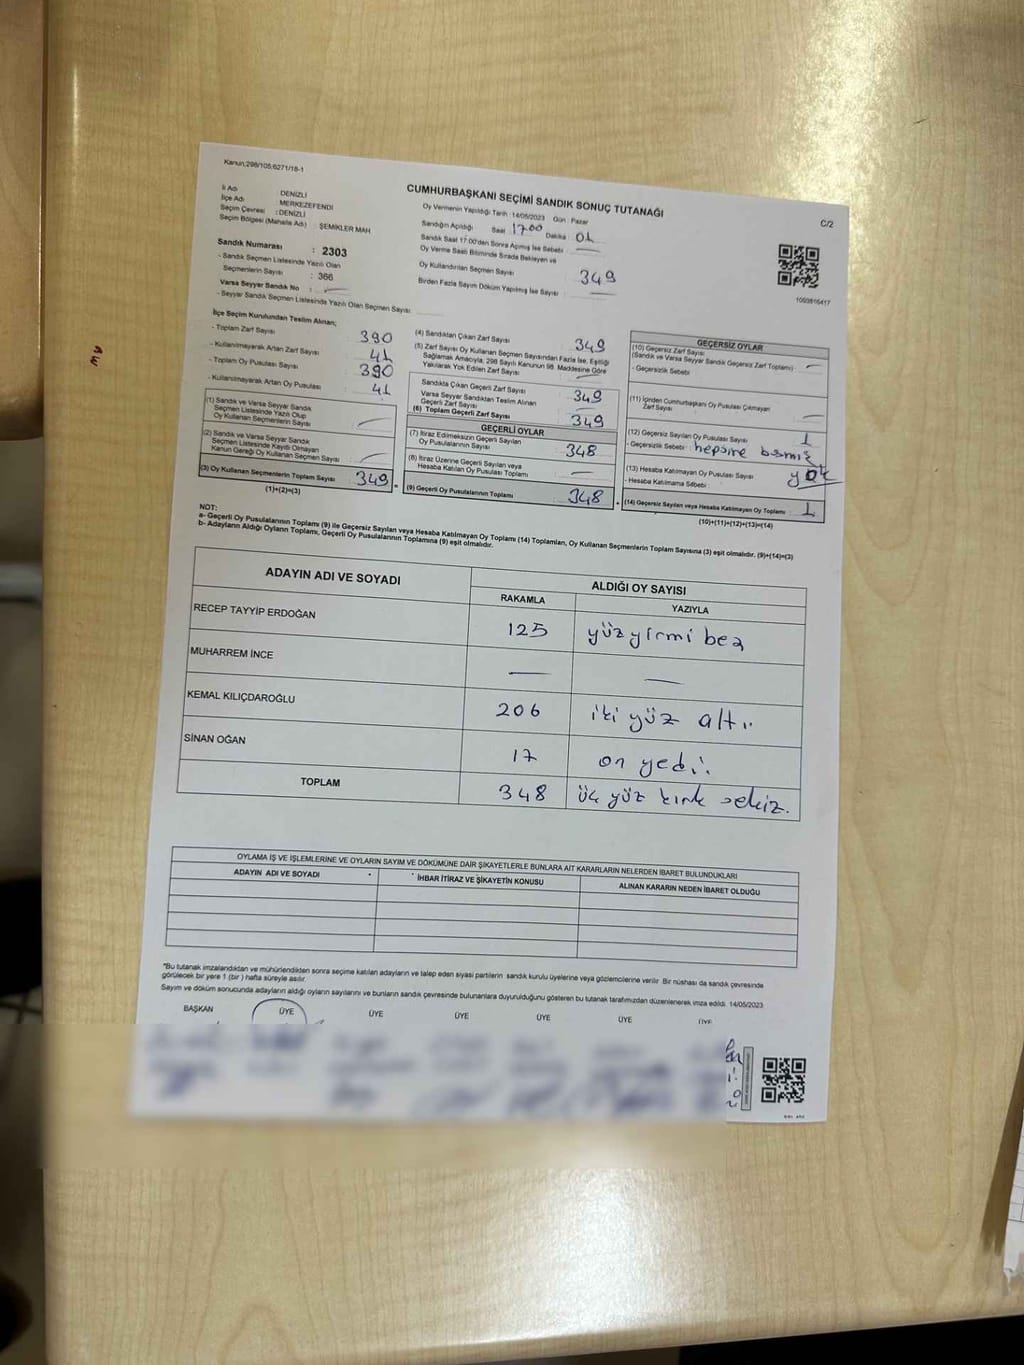 Kanun:298/105;6271/18-1
CUMHURBAŞKANI SEÇİMİ SANDIK SONUÇ TUTANAĞI
C/2
İl Adı DENİZLİ
İlçe Adı MERKEZEFENDİ
Seçim Çevresi : DENİZLİ
Seçim Bölgesi (Mahalle Adı) : ŞEMİKLER MAH
Oy Vermenin Yapıldığı Tarih : 14/05/2023 Gün : Pazar
Sandığın Açıldığı Saat 17:00 Dakika 01
Sandık Saat 17:00'den Sonra Açılmış İse Sebebi
Oy Verme Saati Bitiminde Sırada Bekleyen ve
Oy Kullandırılan Seçmen Sayısı 349
Birden Fazla Sayım Döküm Yapılmış İse Sayısı —
Sandık Numarası : 2303
- Sandık Seçmen Listesinde Yazılı Olan
Seçmenlerin Sayısı : 366
Varsa Seyyar Sandık No : —
- Seyyar Sandık Seçmen Listesinde Yazılı Olan Seçmen Sayısı
1093816417
İlçe Seçim Kurulundan Teslim Alınan;
- Toplam Zarf Sayısı 390
- Kullanılmayarak Artan Zarf Sayısı 41
- Toplam Oy Pusulası Sayısı 390
- Kullanılmayarak Artan Oy Pusulası 41
(1) Sandık ve Varsa Seyyar Sandık
Seçmen Listesinde Yazılı Olup
Oy Kullanan Seçmenlerin Sayısı —
(2) Sandık ve Varsa Seyyar Sandık
Seçmen Listesinde Kayıtlı Olmayan
Kanun Gereği Oy Kullanan Seçmen Sayısı —
(3) Oy Kullanan Seçmenlerin Toplam Sayısı 349
(1)+(2)=(3)
(4) Sandıktan Çıkan Zarf Sayısı 349
(5) Zarf Sayısı Oy Kullanan Seçmen Sayısından Fazla İse, Eşitliği
Sağlamak Amacıyla, 298 Sayılı Kanunun 98. Maddesine Göre
Yakılarak Yok Edilen Zarf Sayısı —
Sandıkta Çıkan Geçerli Zarf Sayısı 349
Varsa Seyyar Sandıktan Teslim Alınan
Geçerli Zarf Sayısı —
(6) Toplam Geçerli Zarf Sayısı 349
GEÇERLİ OYLAR
(7) İtiraz Edilmeksizin Geçerli Sayılan
Oy Pusulalarının Sayısı 348
(8) İtiraz Üzerine Geçerli Sayılan veya
Hesaba Katılan Oy Pusulası Toplamı —
(9) Geçerli Oy Pusulalarının Toplamı 348
GEÇERSİZ OYLAR
(10) Geçersiz Zarf Sayısı
(Sandık ve Varsa Seyyar Sandık Geçersiz Zarf Toplamı) —
- Geçersizlik Sebebi
(11) İçinden Cumhurbaşkanı Oy Pusulası Çıkmayan
Zarf Sayısı —
(12) Geçersiz Sayılan Oy Pusulası Sayısı 1
- Geçersizlik Sebebi hepsine basmış
(13) Hesaba Katılmayan Oy Pusulası Sayısı yok
- Hesaba Katılmama Sebebi
(14) Geçersiz Sayılan veya Hesaba Katılmayan Oy Toplamı 1
(10)+(11)+(12)+(13)=(14)
NOT:
a- Geçerli Oy Pusulalarının Toplamı (9) ile Geçersiz Sayılan veya Hesaba Katılmayan Oy Toplamı (14) Toplamları, Oy Kullanan Seçmenlerin Toplam Sayısına (3) eşit olmalıdır. (9)+(14)=(3)
b- Adayların Aldığı Oyların Toplamı, Geçerli Oy Pusulalarının Toplamına (9) eşit olmalıdır.
ADAYIN ADI VE SOYADI ALDIĞI OY SAYISI
RAKAMLA YAZIYLA
RECEP TAYYİP ERDOĞAN 125 yüz yirmi beş
MUHARREM İNCE — —
KEMAL KILIÇDAROĞLU 206 iki yüz altı
SİNAN OĞAN 17 on yedi
TOPLAM 348 üç yüz kırk sekiz.
OYLAMA İŞ VE İŞLEMLERİNE VE OYLARIN SAYIM VE DÖKÜMÜNE DAİR ŞİKAYETLERLE BUNLARA AİT KARARLARIN NELERDEN İBARET BULUNDUKLARI
ADAYIN ADI VE SOYADI İHBAR İTİRAZ VE ŞİKAYETİN KONUSU ALINAN KARARIN NEDEN İBARET OLDUĞU
*Bu tutanak imzalandıktan ve mühürlendikten sonra seçime katılan adayların ve talep eden siyasi partilerin sandık kurulu üyelerine veya gözlemcilerine verilir. Bir nüshası da sandık çevresinde
görülecek bir yere 1 (bir) hafta süreyle asılır.
Sayım ve döküm sonucunda adayların aldığı oyların sayılarını ve bunların sandık çevresinde bulunanlara duyurulduğunu gösteren bu tutanak tarafımızdan düzenlenerek imza edildi. 14/05/2023
BAŞKAN ÜYE ÜYE ÜYE ÜYE ÜYE ÜYE